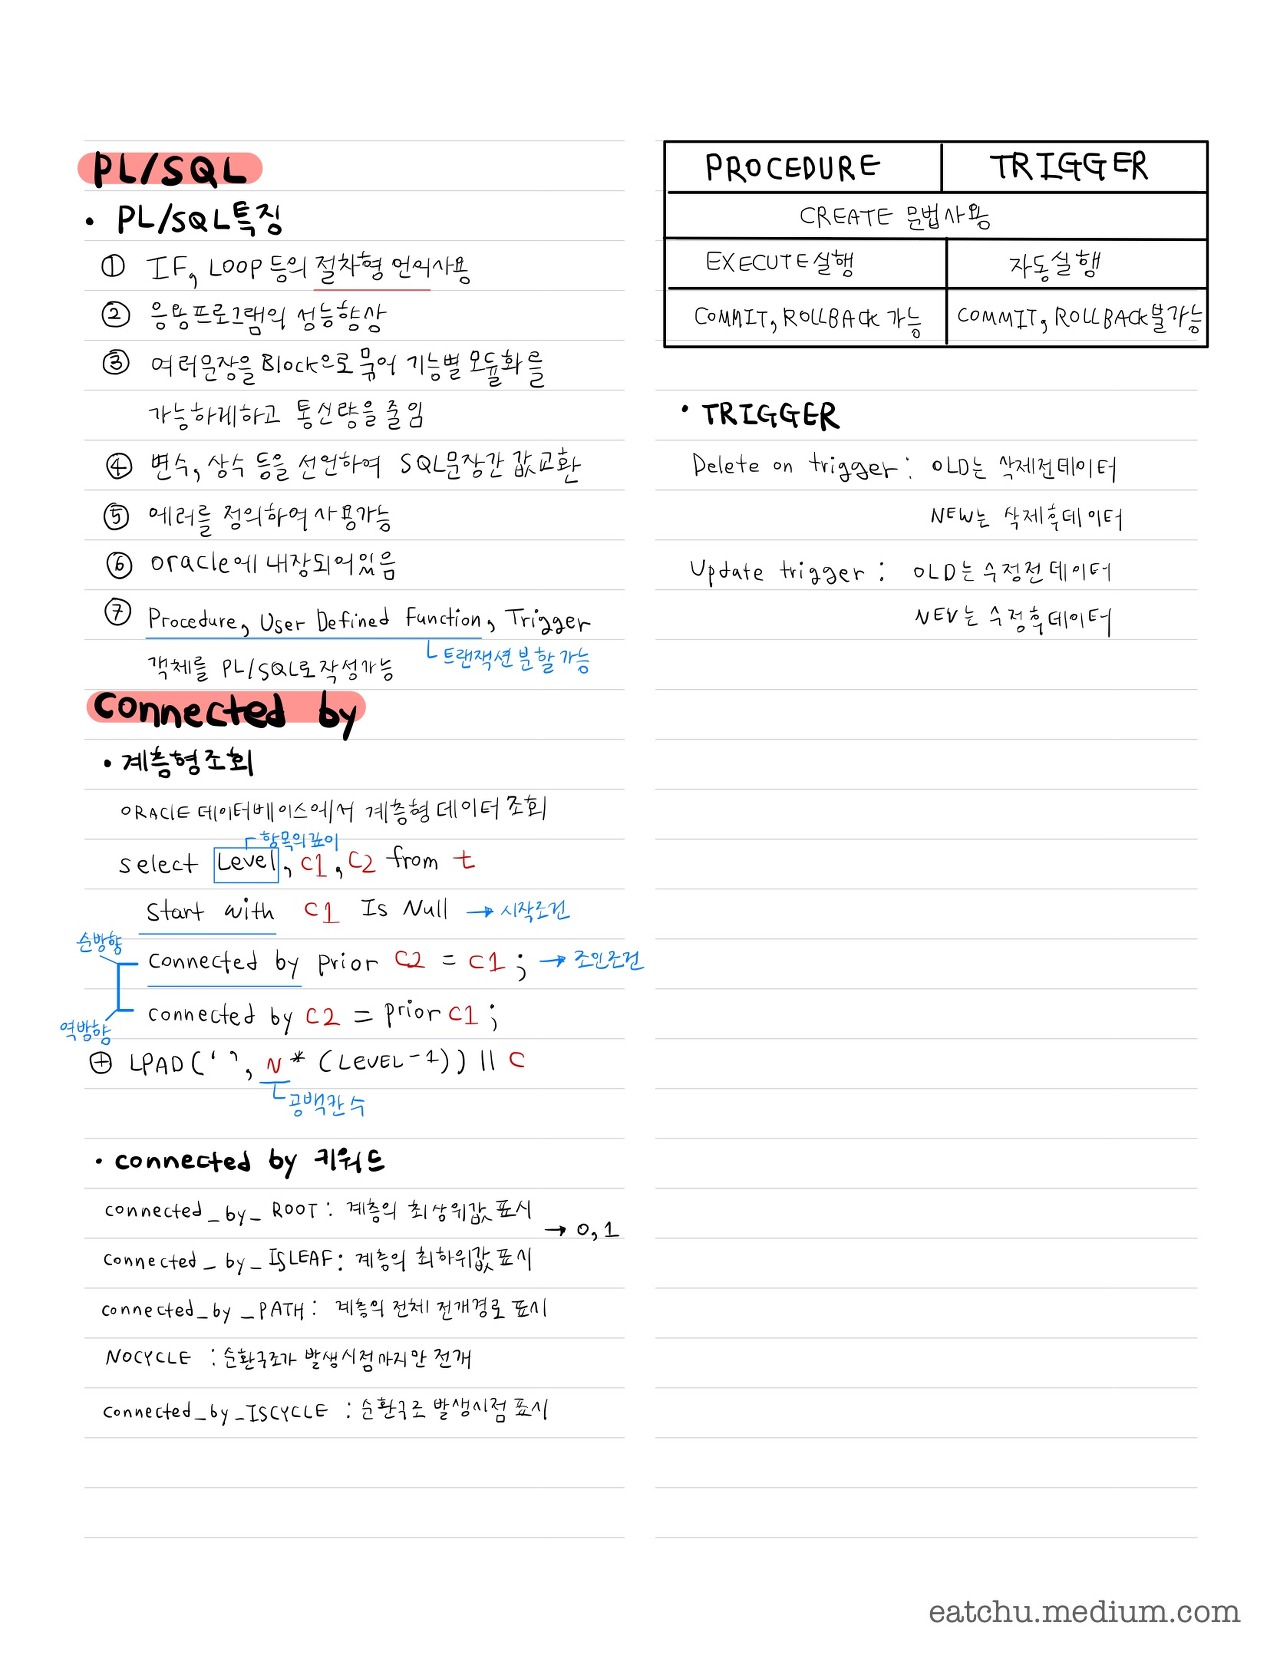 PL/SQL
• PL/SQL특징
① IF, LOOP등의 절차형 언어사용
② 응용프로그램의 성능향상
③ 여러문장을 Block으로 묶어 기능별 모듈화를
가능하게하고 통신량을 줄임
④ 변수, 상수 등을 선언하여 SQL문장간 값교환
⑤ 에러를 정의하여 사용가능
⑥ oracle에 내장되어있음
⑦ Procedure, User Defined Function, Trigger
객체를 PL/SQL로 작성가능
트랜잭션 분할가능
Connected by
• 계층형조회
ORACLE 데이터베이스에서 계층형 데이터 조회
항목의깊이
select Level, C1, C2 from t
start with C1 Is Null → 시작조건
순방향
connected by prior C2 = C1 ; → 조인조건
connected by C2 = prior C1 ;
역방향
⊕ LPAD(' ', N * (LEVEL-1)) || C
공백칸 수
• connected by 키워드
connected_by_ROOT : 계층의 최상위값 표시
→ 0, 1
connected_by_ISLEAF : 계층의 최하위값 표시
connected_by_PATH : 계층의 전체 전개경로 표시
NOCYCLE : 순환구조가 발생시점까지만 전개
connected_by_ISCYCLE : 순환구조 발생시점 표시
PROCEDURE TRIGGER
CREATE 문법사용
EXECUTE실행 자동실행
COMMIT, ROLLBACK 가능 COMMIT, ROLLBACK불가능
• TRIGGER
Delete on trigger : OLD는 삭제전데이터
NEW는 삭제후데이터
Update trigger : OLD는 수정전 데이터
NEW는 수정후데이터
eatchu.medium.com